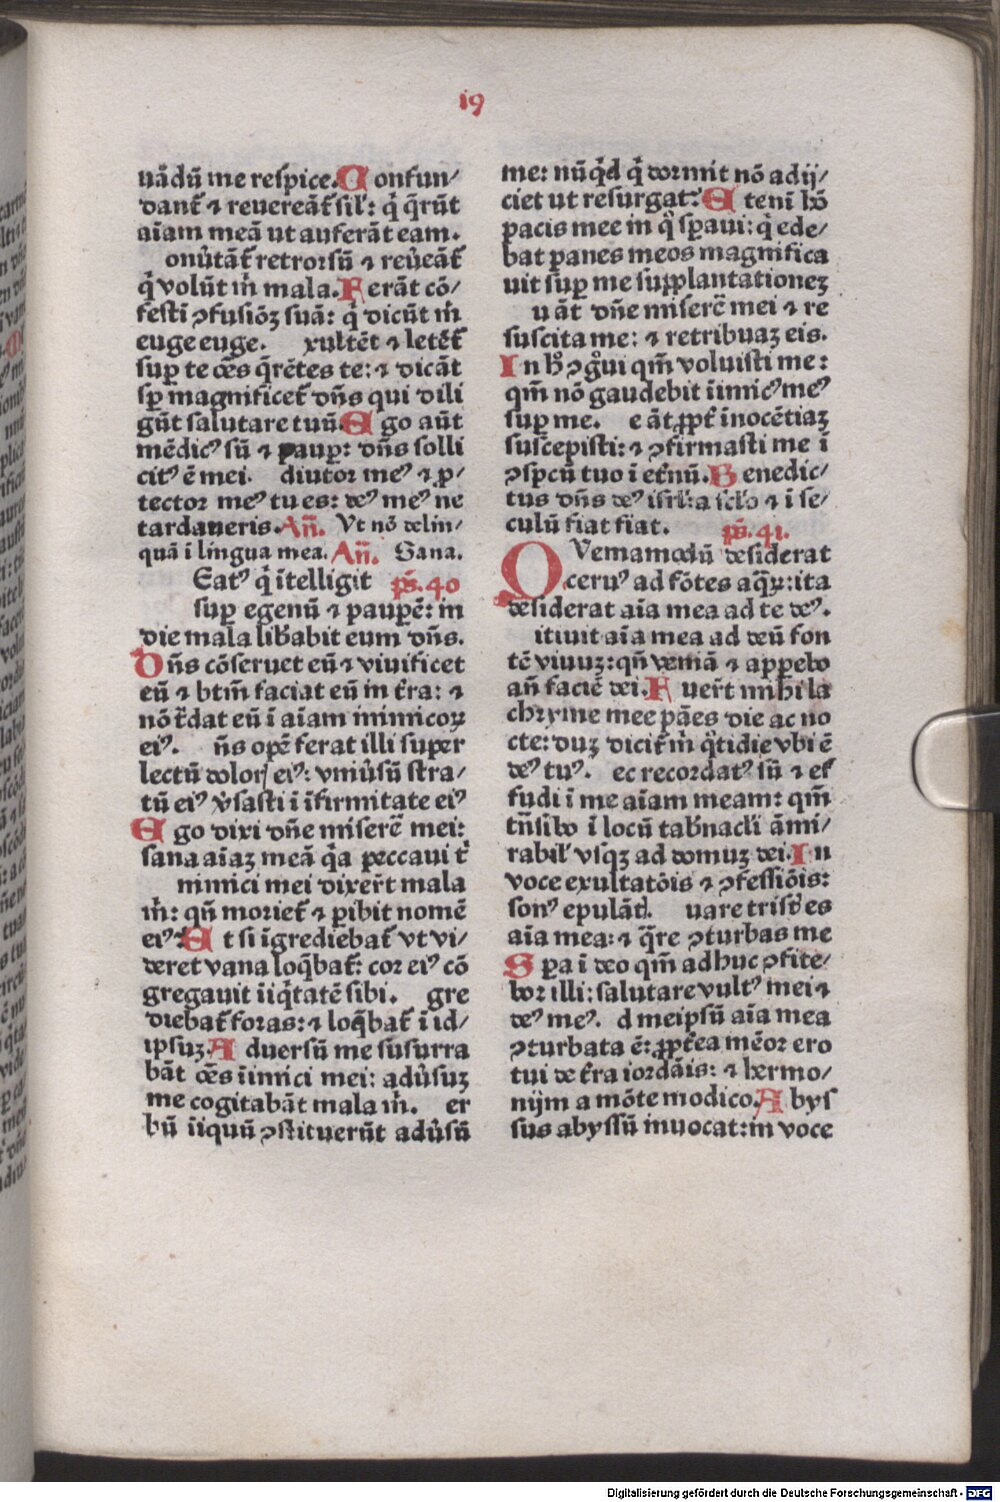 19
uādū me respice. Confun/
dant̄ ⁊ reuereāt̄ sil': q̇ q̄rūt
aīam meā ut auferāt eam.
onu̇tāt̄ retrorsū ⁊ reu̇eāt̄
q̇ volūt m̄ mala. Ferāt cō/
festī ꝯfusiōȝ suā: q̇ dicūt m̄
euge euge. xultēt ⁊ letēt̄
sup te oēs q̄rētes te: ⁊ dicāt
sp magnificet̄ dn̄s qui dili
gūt salutare tuū. Ego aūt
mēdicꝰ sū ⁊ paup: dn̄s solli
citꝰ ē mei. diutor meꝰ ⁊ ꝓ/
tector meꝰ tu es: deꝰ meꝰ ne
tardaueris. Añ. Vt nō delin/
quā ī lingua mea. Añ. Sana.
Eatꝰ q̇ ītelligit ps. 40
sup egenū ⁊ paupē: in
die mala lib̄abit eum dn̄s.
Dn̄s cōseruet eū ⁊ viuificet
eū ⁊ btm̄ faciat eū in t̄ra: ⁊
nō t̄dat eū ī aīam inimicoꝝ
eiꝰ. n̄s opē ferat illi super
lectū dolorꝭ eiꝰ: vniu̇sū stra/
tū eiꝰ v̇sasti ī īfirmitate eiꝰ
Ego dixi dn̄e miserē mei:
sana aīaȝ meā q̇a peccaui t̄
nimici mei dixer̄t mala
m̄: qn̄ moriet̄ ⁊ ꝑibit nomē
eiꝰ: Et si īgrediebat̄ vt vi/
deret vana loq̄bat̄: cor eiꝰ cō
gregauit īiq̇tatē sibi. gre
diebat̄ foras: ⁊ loq̄bat̄ ī id/
ipsuȝ. Aduersū me susurra
bāt oēs īimici mei: adu̇suȝ
me cogitabāt mala m̄. er
bū īiquū ꝯstituerūt adu̇sū
me: nūq̇d q̇ dormit nō adij/
ciet ut resurgat: Etenī hō
pacis mee in q̊ sꝑaui: q̇ ede/
bat panes meos magnifica
uit sup me supplantationeȝ
u āt dn̄e miserē mei ⁊ re
suscita me: ⁊ retribuaȝ eis.
In h̊ ꝯgu̇i qm̄ voluisti me:
qm̄ nō gaudebit īimicꝰ meꝰ
sup me. e āt ꝓpt̄ inocētiaȝ
suscepisti: ⁊ ꝯfirmasti me ī
ꝯspcū tuo ī et̄nū. Benedic/
tus dn̄s deꝰ isrl' a sclo ⁊ ī se/
culū fiat fiat. ps. 41.
QVemamodū desiderat
ceruꝰ ad fōtes aq̄ꝝ: ita
desiderat aīa mea ad te deꝰ.
itiuit aīa mea ad deū fon
tē viuuȝ: qn̄ veniā ⁊ appebo
añ faciē dei. Fuer̄t mihi la
chryme mee pāes die ac no
cte: duȝ dicit̄ m̄ q̊tidie vbi ē
deꝰ tuꝰ. ec recordatꝰ sū ⁊ ef
fudi ī me aīam meam: qm̄
tn̄sibo ī locū tab̄nacl'i āmi/
rabil' vsqȝ ad domuȝ dei. In
voce exultatōis ⁊ ꝯfessiōis:
sonꝰ epulāt̄. uare tristꝭ es
aīa mea: ⁊ q̄re ꝯturbas me
Spa ī deo qm̄ adhuc ꝯfite/
bor illi: salutare vultꝰ mei ⁊
deꝰ meꝰ. d meipsū aīa mea
ꝯturbata ē: ꝓpt̄ea mēor ero
tui de t̄ra iordāis: ⁊ hermo/
nijm a mōte modico. Abys
sus abyssū inuocat: in voce
Digitalisierung gefördert durch die Deutsche Forschungsgemeinschaft - DFG